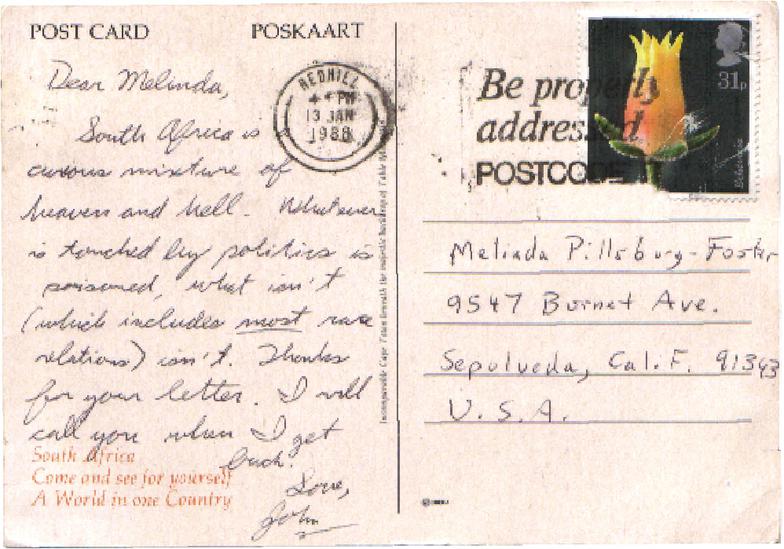 POST CARD POSKAART
Dear Melinda,
South Africa is
curious mixture of
heaven and hell. Whatever
is touched by politics is
poisoned, what isn't
(which includes most race
relations) isn't. Thanks
for your letter. I will
call you when I get
back.
Love,
John
South Africa
Come and see for yourself
A World in one Country
REDHILL
PM
13 JAN
1988
Be properly
addressed
POSTCODE
31p
Melinda Pillsbury-Foster
9547 Burnet Ave.
Sepulveda, Calif. 91343
U.S.A.